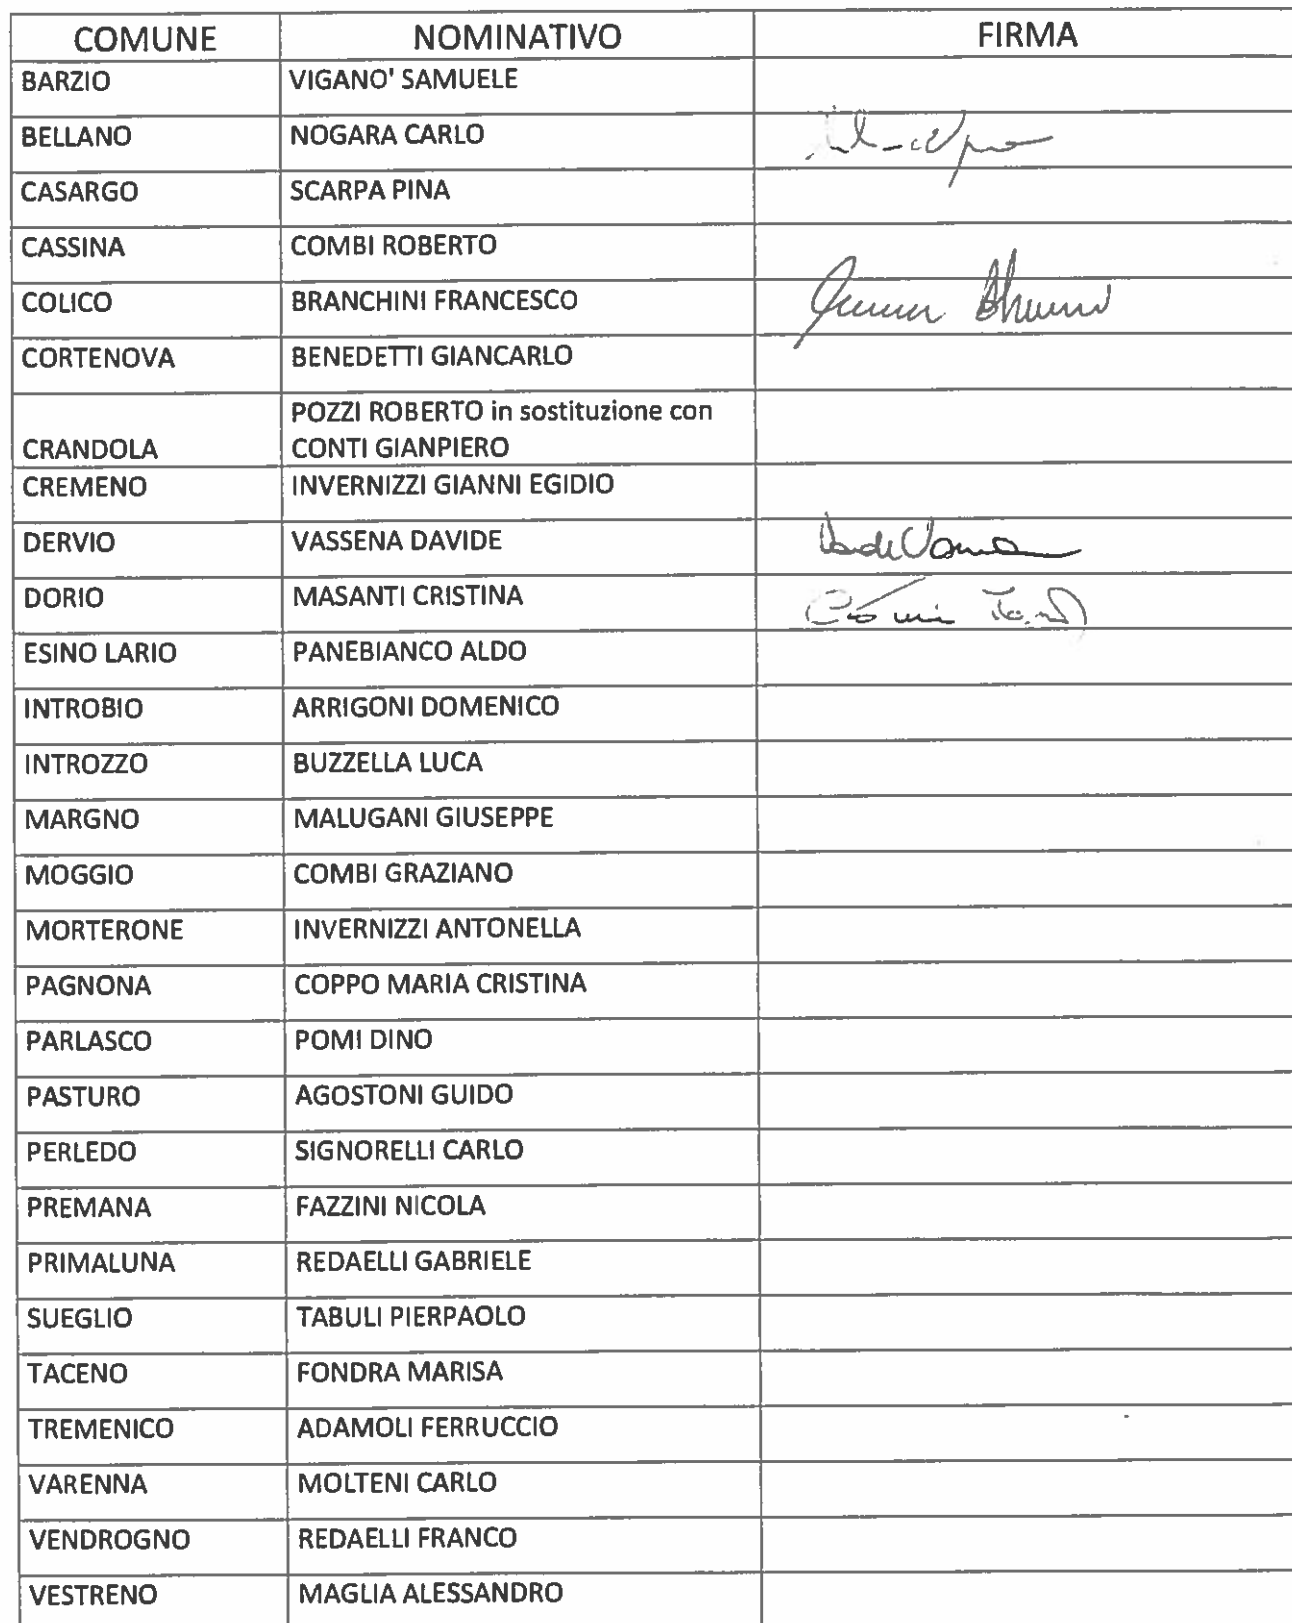 COMUNE NOMINATIVO FIRMA
BARZIO VIGANO' SAMUELE
BELLANO NOGARA CARLO
CASARGO SCARPA PINA
CASSINA COMBI ROBERTO
COLICO BRANCHINI FRANCESCO
CORTENOVA BENEDETTI GIANCARLO
POZZI ROBERTO in sostituzione con
CRANDOLA CONTI GIANPIERO
CREMENO INVERNIZZI GIANNI EGIDIO
DERVIO VASSENA DAVIDE
DORIO MASANTI CRISTINA
ESINO LARIO PANEBIANCO ALDO
INTROBIO ARRIGONI DOMENICO
INTROZZO BUZZELLA LUCA
MARGNO MALUGANI GIUSEPPE
MOGGIO COMBI GRAZIANO
MORTERONE INVERNIZZI ANTONELLA
PAGNONA COPPO MARIA CRISTINA
PARLASCO POMI DINO
PASTURO AGOSTONI GUIDO
PERLEDO SIGNORELLI CARLO
PREMANA FAZZINI NICOLA
PRIMALUNA REDAELLI GABRIELE
SUEGLIO TABULI PIERPAOLO
TACENO FONDRA MARISA
TREMENICO ADAMOLI FERRUCCIO
VARENNA MOLTENI CARLO
VENDROGNO REDAELLI FRANCO
VESTRENO MAGLIA ALESSANDRO